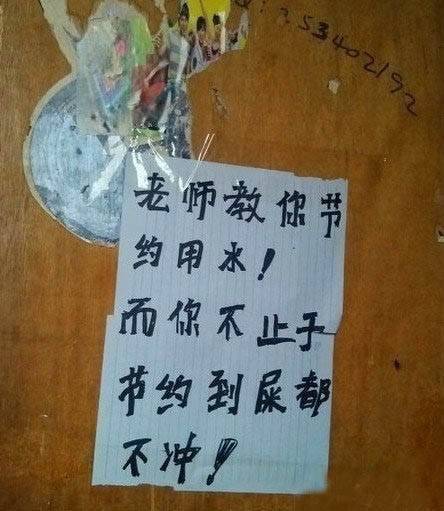 53402192
老师教你节
约用水!
而你不止于
节约到屎都
不冲!